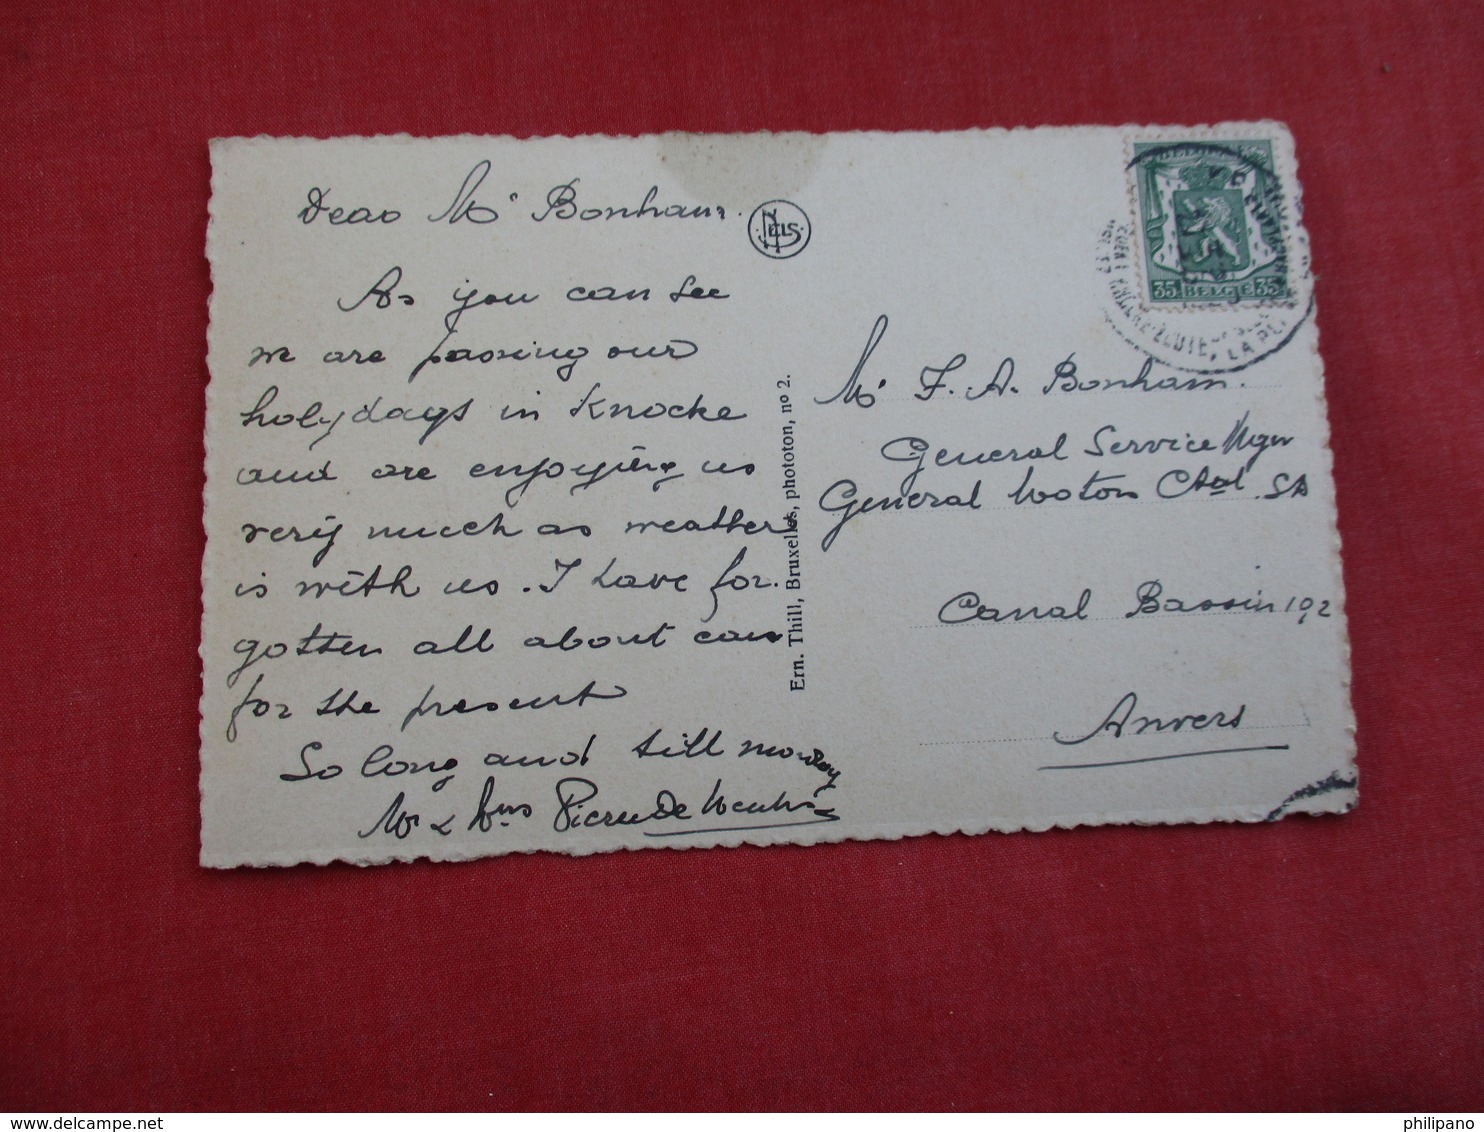 Dear Mr Bonham.
As you can see
we are passing our
holydays in Knocke
and are enjoying us
very much as weather
is with us. I have for-
gotten all about cars
for the present
So long and till monday
Mr & Mrs Pierre De
NELS
Ern. Thill, Bruxelles, phototon, nº 2.
BELGIQUE
35 BELGIE 35
LA PL
Mr F. A. Bonham.
General Service Mgr
General Motors Ctal SA
Canal Bassin 192
Anvers
www.delcampe.net
philipano